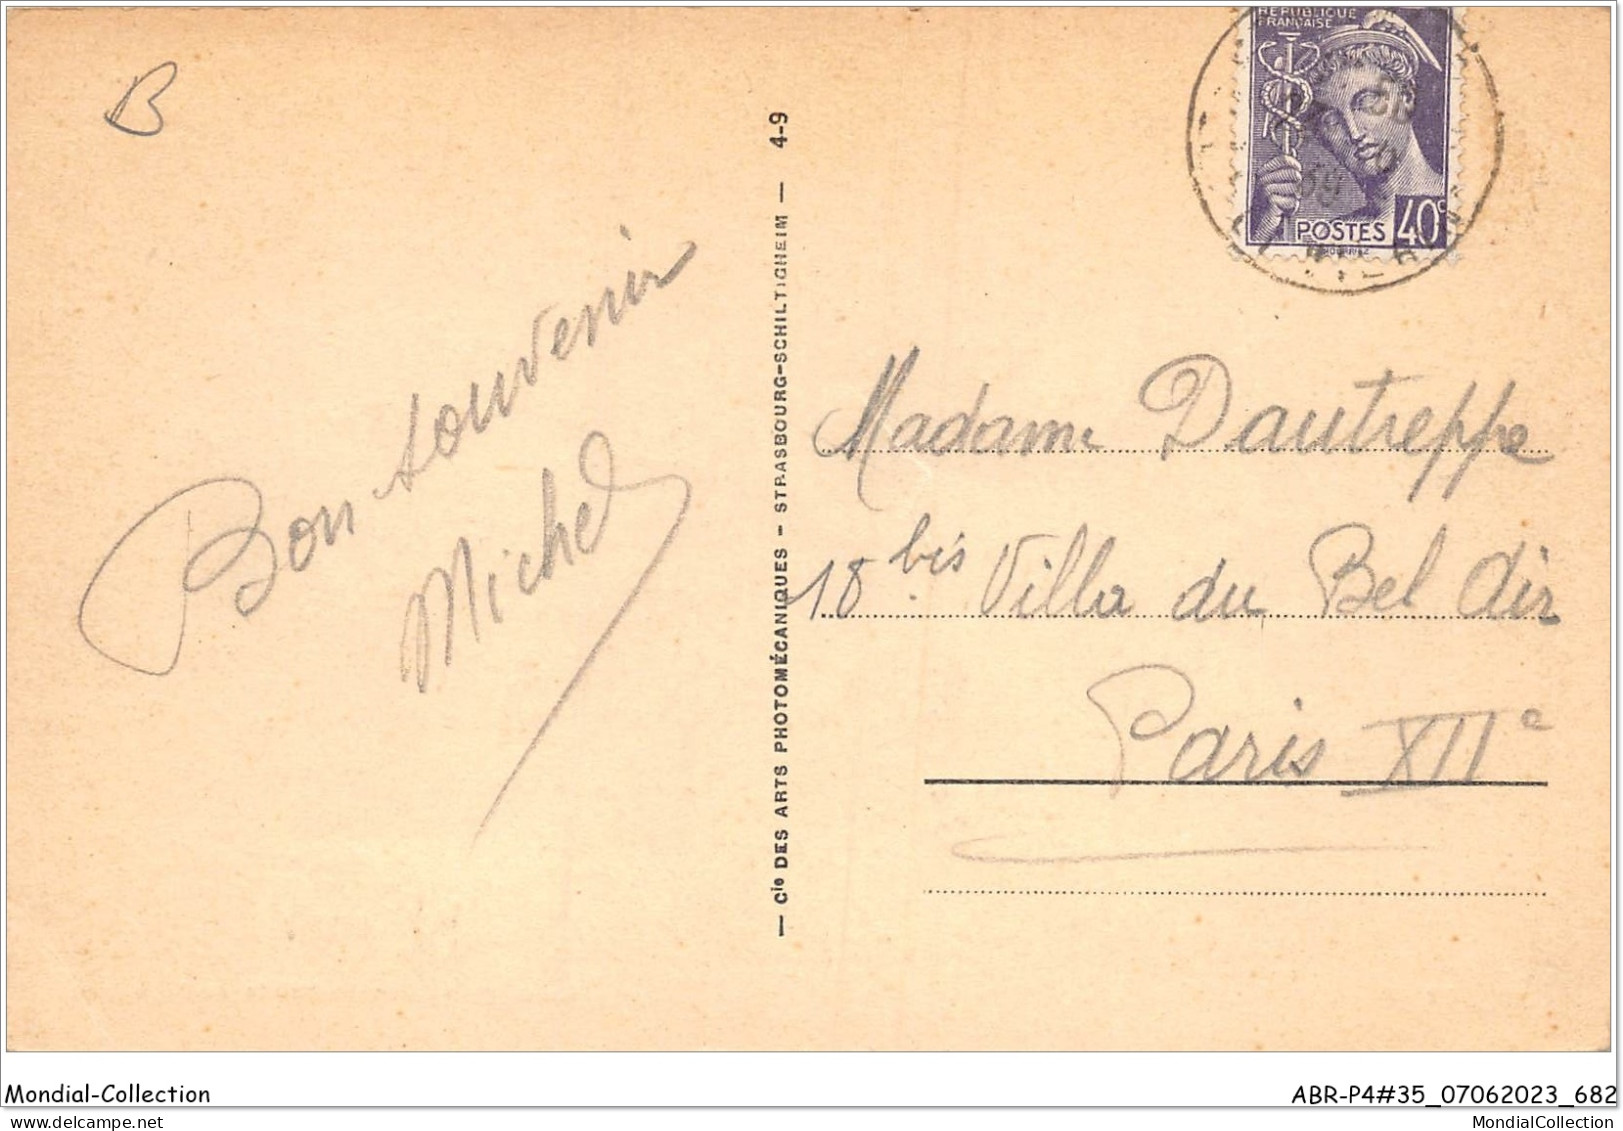 B
RÉPUBLIQUE
FRANÇAISE
POSTES 40c
39
Bon souvenir
Michel
— Cie DES ARTS PHOTOMÉCANIQUES — STRASBOURG-SCHILTIGHEIM — 4-9
Madame Dautreppe
18 bis Villa du Bel Air
Paris XIIe
Mondial-Collection
ABR-P4#35_07062023_682
MondialCollection